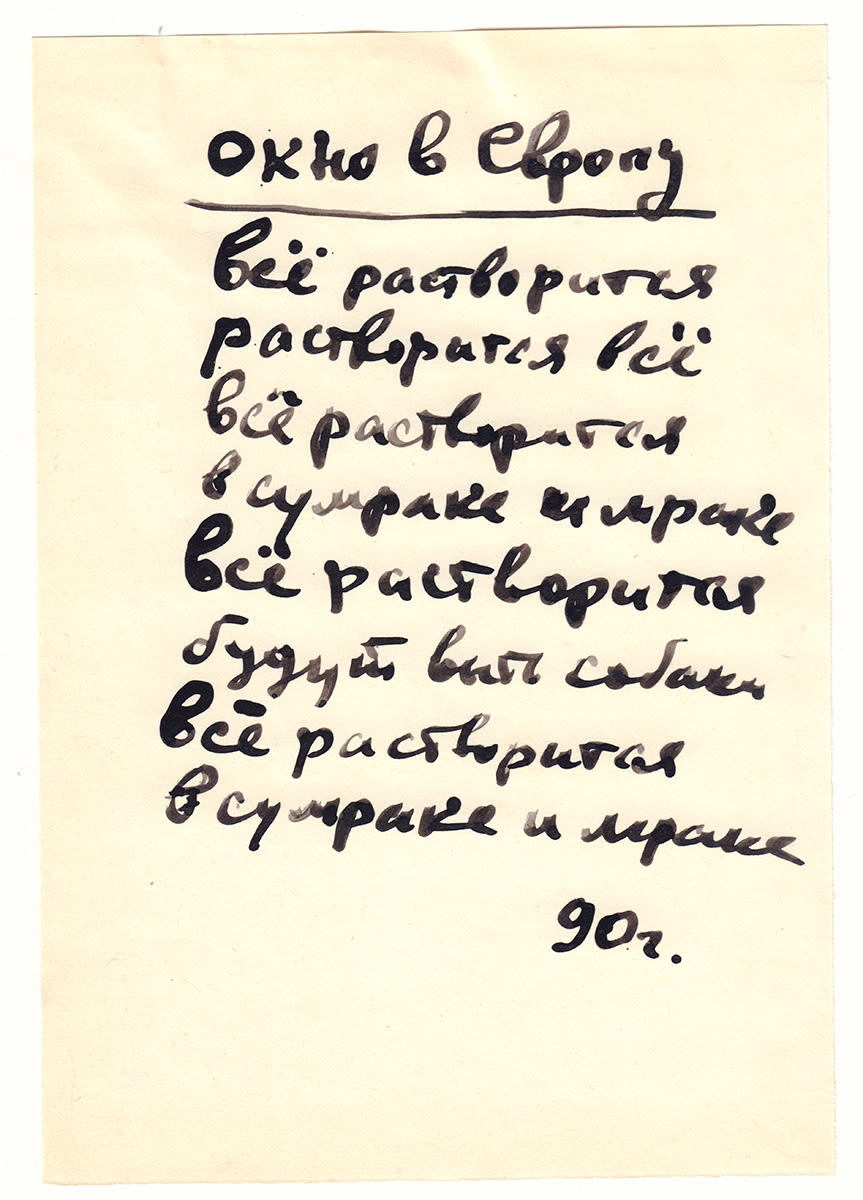 окно в Европу
всё растворится
растворится всё
всё растворится
в сумраке и мраке
всё растворится
будут выть собаки
всё растворится
в сумраке и мраке
90г.